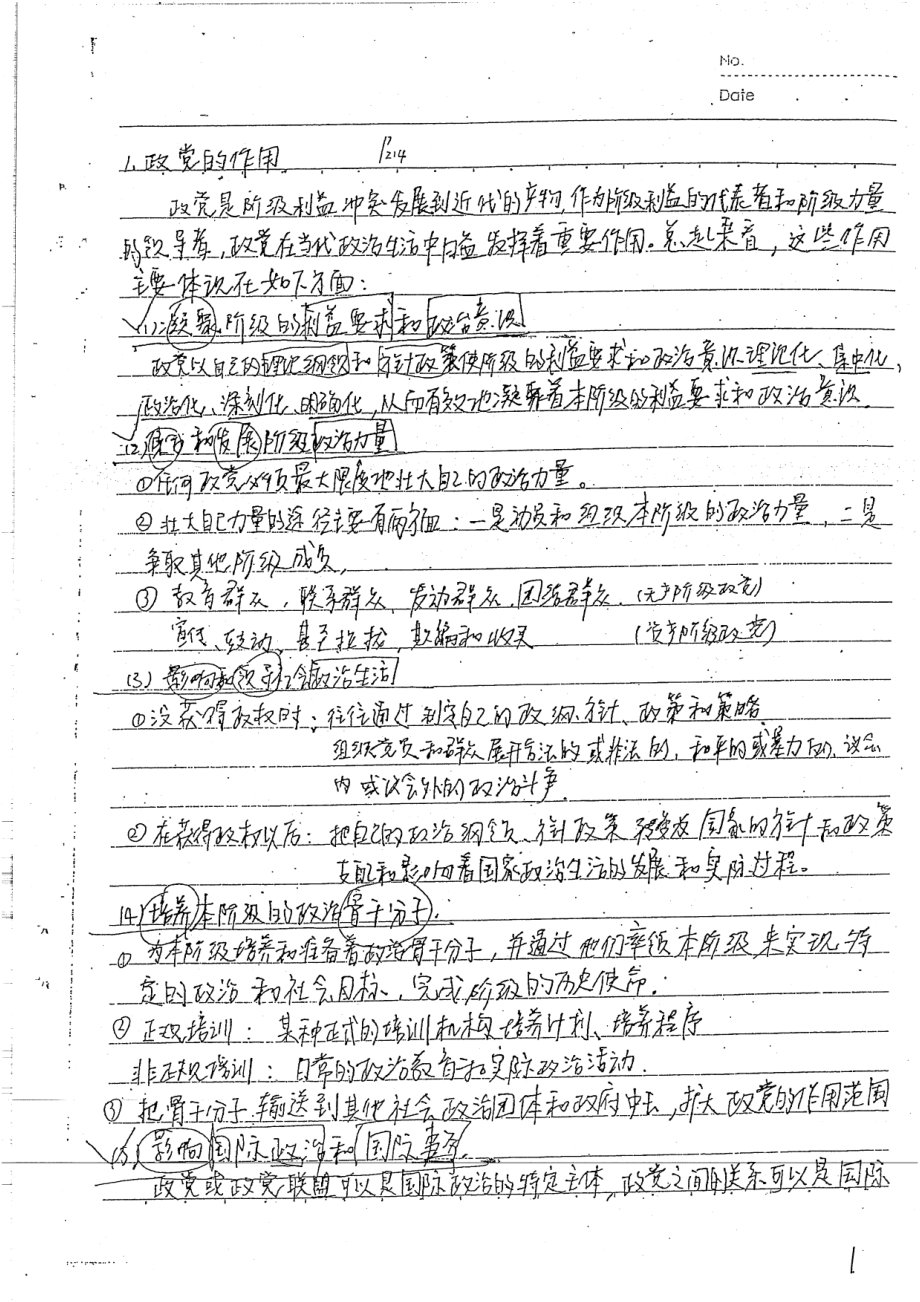 No.
Date
1、政党的作用 P214
政党是阶级利益冲突发展到近代的产物,作为阶级利益的代表者和阶级力量
的领导者,政党在当代政治生活中日益发挥着重要作用。总起来看,这些作用
主要体现在如下方面:
(1)凝聚阶级的利益要求和政治意识
政党以自己的理论纲领和方针政策使阶级的利益要求和政治意识理论化、集中化,
政治化、深刻化、明确化,从而有效地凝聚着本阶级的利益要求和政治意识.
(2)和发展阶级政治力量
①任何政党必须最大限度地壮大自己的政治力量。
②壮大自己力量的途径主要有两个:一是动员和组织本阶级的政治力量,二是
争取其他阶级成员.
③ 教育群众,联系群众、发动群众、团结群众.(无产阶级政党)
宣传、鼓动、甚至拉拢,欺骗和收买 (资产阶级政党)
(3)影响和领导社会政治生活
①没获得政权时:往往通过制定自己的政纲、方针、政策和策略
组织党员和群众展开合法的或非法的,和平的或暴力的,议会
内或议会外的政治斗争.
②在获得政权以后:把自己的政治纲领、方针政策转变成国家的方针和政策
支配和影响着国家政治生活的发展和实际过程。
(4)培养本阶级的政治骨干分子.
①为本阶级培养和准备着政治骨干分子,并通过他们率领本阶级来实现特
定的政治和社会目标,完成阶级的历史使命.
②正规培训:某种正式的培训机构、培养计划、培养程序
非正规培训:日常的政治教育和实际政治活动.
③把骨干分子输送到其他社会政治团体和政府中去,扩大政党的作用范围
(5)影响国际政治和国际事务.
政党或政党联盟可以是国际政治的特定主体,政党之间的关系可以是国际
1